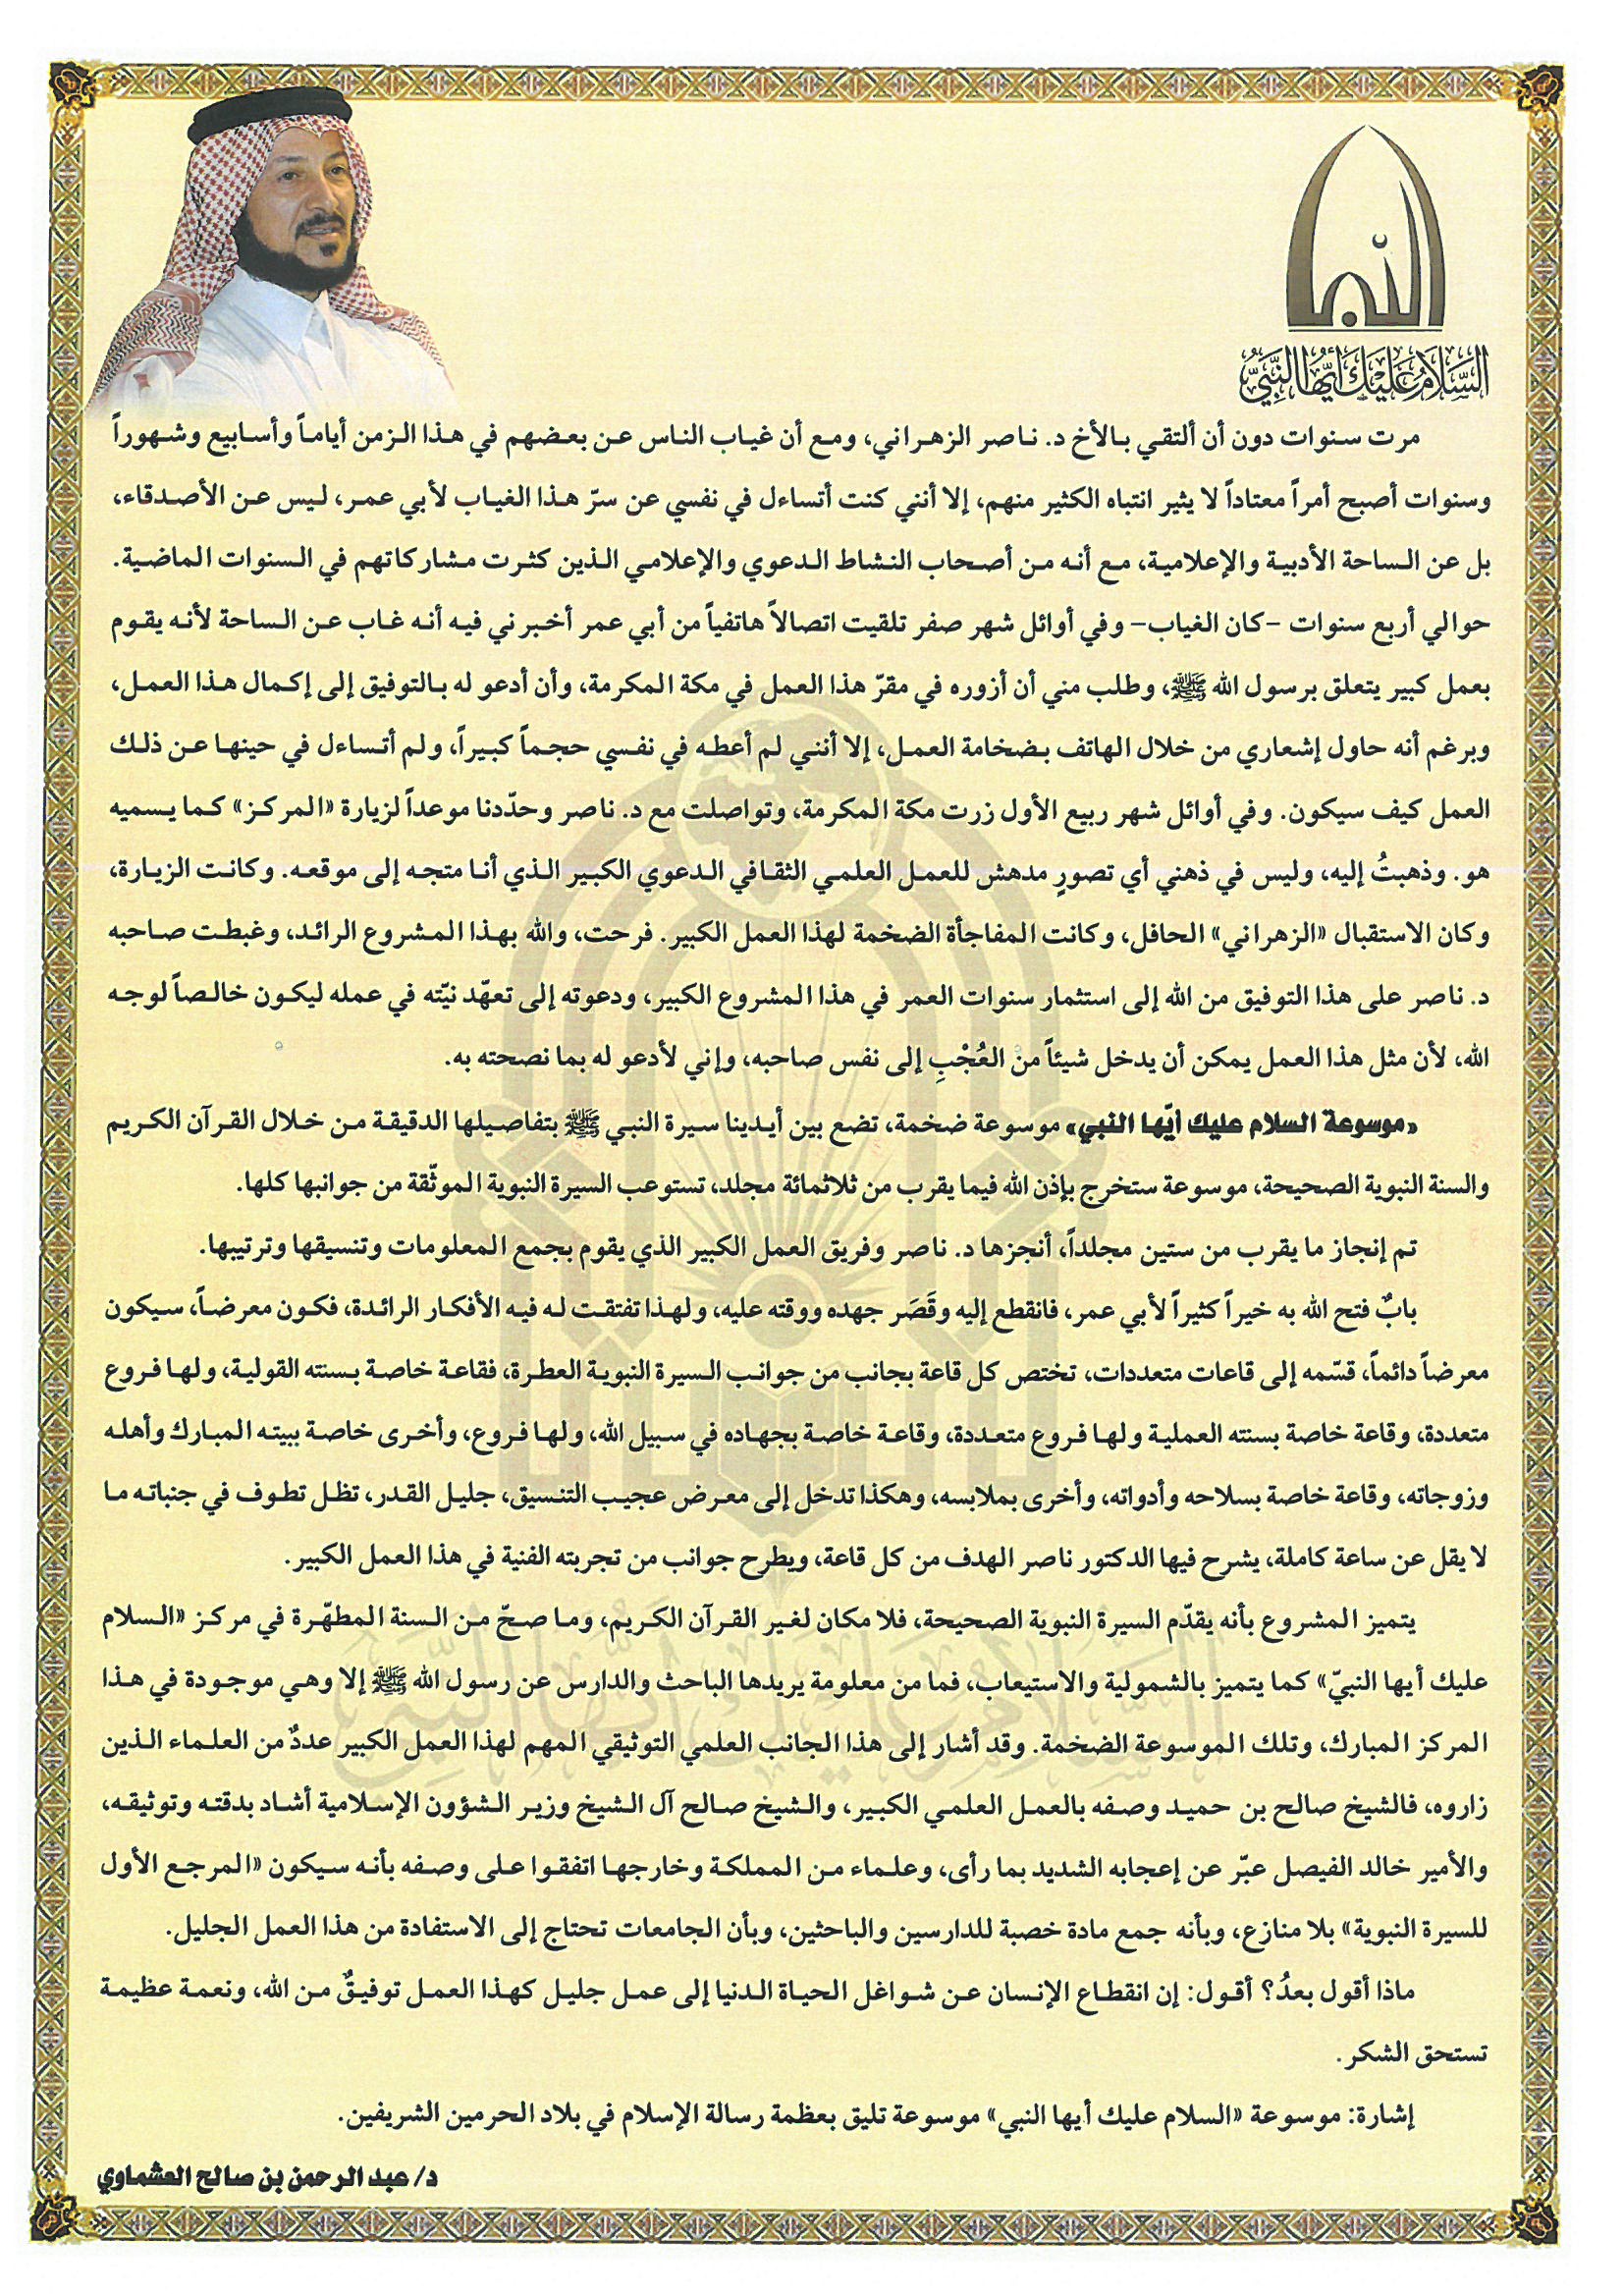 النبا
السَّلَامُ عَلَيْكَ أَيُّهَا النَّبِيُّ
مرت سنوات دون أن ألتقي بالأخ د. ناصر الزهراني، ومع أن غياب الناس عن بعضهم في هذا الزمن أياماً وأسابيع وشهوراً
وسنوات أصبح أمراً معتاداً لا يثير انتباه الكثير منهم، إلا أنني كنت أتساءل في نفسي عن سرّ هذا الغياب لأبي عمر، ليس عن الأصدقاء،
بل عن الساحة الأدبية والإعلامية، مع أنه من أصحاب النشاط الدعوي والإعلامي الذين كثرت مشاركاتهم في السنوات الماضية.
حوالي أربع سنوات -كان الغياب- وفي أوائل شهر صفر تلقيت اتصالاً هاتفياً من أبي عمر أخبرني فيه أنه غاب عن الساحة لأنه يقوم
بعمل كبير يتعلق برسول الله ﷺ، وطلب مني أن أزوره في مقرّ هذا العمل في مكة المكرمة، وأن أدعو له بالتوفيق إلى إكمال هذا العمل،
وبرغم أنه حاول إشعاري من خلال الهاتف بضخامة العمل، إلا أنني لم أعطه في نفسي حجماً كبيراً، ولم أتساءل في حينها عن ذلك
العمل كيف سيكون. وفي أوائل شهر ربيع الأول زرت مكة المكرمة، وتواصلت مع د. ناصر وحدّدنا موعداً لزيارة «المركز» كما يسميه
هو. وذهبتُ إليه، وليس في ذهني أي تصورٍ مدهش للعمل العلمي الثقافي الدعوي الكبير الذي أنا متجه إلى موقعه. وكانت الزيارة،
وكان الاستقبال «الزهراني» الحافل، وكانت المفاجأة الضخمة لهذا العمل الكبير. فرحت، والله بهذا المشروع الرائد، وغبطت صاحبه
د. ناصر على هذا التوفيق من الله إلى استثمار سنوات العمر في هذا المشروع الكبير، ودعوته إلى تعهّد نيّته في عمله ليكون خالصاً لوجه
الله، لأن مثل هذا العمل يمكن أن يدخل شيئاً من العُجْبِ إلى نفس صاحبه، وإني لأدعو له بما نصحته به.
«موسوعة السلام عليك أيّها النبي» موسوعة ضخمة، تضع بين أيدينا سيرة النبي ﷺ بتفاصيلها الدقيقة من خلال القرآن الكريم
والسنة النبوية الصحيحة، موسوعة ستخرج بإذن الله فيما يقرب من ثلاثمائة مجلد، تستوعب السيرة النبوية الموثّقة من جوانبها كلها.
تم إنجاز ما يقرب من ستين مجلداً، أنجزها د. ناصر وفريق العمل الكبير الذي يقوم بجمع المعلومات وتنسيقها وترتيبها.
بابٌ فتح الله به خيراً كثيراً لأبي عمر، فانقطع إليه وقَصَر جهده ووقته عليه، ولهذا تفتقت له فيه الأفكار الرائدة، فكون معرضاً، سيكون
معرضاً دائماً، قسّمه إلى قاعات متعددات، تختص كل قاعة بجانب من جوانب السيرة النبوية العطرة، فقاعة خاصة بسنته القولية، ولها فروع
متعددة، وقاعة خاصة بسنته العملية ولها فروع متعددة، وقاعة خاصة بجهاده في سبيل الله، ولها فروع، وأخرى خاصة ببيته المبارك وأهله
وزوجاته، وقاعة خاصة بسلاحه وأدواته، وأخرى بملابسه، وهكذا تدخل إلى معرض عجيب التنسيق، جليل القدر، تظل تطوف في جنباته ما
لا يقل عن ساعة كاملة، يشرح فيها الدكتور ناصر الهدف من كل قاعة، ويطرح جوانب من تجربته الفنية في هذا العمل الكبير.
يتميز المشروع بأنه يقدّم السيرة النبوية الصحيحة، فلا مكان لغير القرآن الكريم، وما صحّ من السنة المطهّرة في مركز «السلام
عليك أيها النبيّ» كما يتميز بالشمولية والاستيعاب، فما من معلومة يريدها الباحث والدارس عن رسول الله ﷺ إلا وهي موجودة في هذا
المركز المبارك، وتلك الموسوعة الضخمة. وقد أشار إلى هذا الجانب العلمي التوثيقي المهم لهذا العمل الكبير عددٌ من العلماء الذين
زاروه، فالشيخ صالح بن حميد وصفه بالعمل العلمي الكبير، والشيخ صالح آل الشيخ وزير الشؤون الإسلامية أشاد بدقته وتوثيقه،
والأمير خالد الفيصل عبّر عن إعجابه الشديد بما رأى، وعلماء من المملكة وخارجها اتفقوا على وصفه بأنه سيكون «المرجع الأول
للسيرة النبوية» بلا منازع، وبأنه جمع مادة خصبة للدارسين والباحثين، وبأن الجامعات تحتاج إلى الاستفادة من هذا العمل الجليل.
ماذا أقول بعدُ؟ أقول: إن انقطاع الإنسان عن شواغل الحياة الدنيا إلى عمل جليل كهذا العمل توفيقٌ من الله، ونعمة عظيمة
تستحق الشكر.
إشارة: موسوعة «السلام عليك أيها النبي» موسوعة تليق بعظمة رسالة الإسلام في بلاد الحرمين الشريفين.
د/ عبد الرحمن بن صالح العشماوي